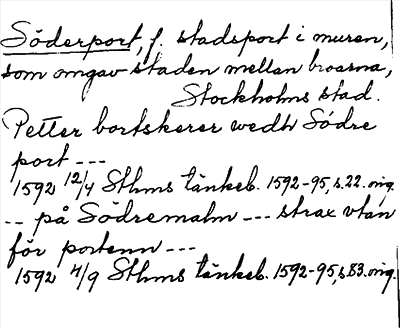 Söderport, f. stadsport i muren,
som omgav staden mellan broarna,
Stockholms stad.
Petter bortskerer wedh Södre
port ---
1592 12/4 Sthms tänkeb. 1592-95, s. 22. orig.
-- på Södremalm --- strax vtan
för portenn ---
1592 4/9 Sthms tänkeb. 1592-95, s. 83. orig.